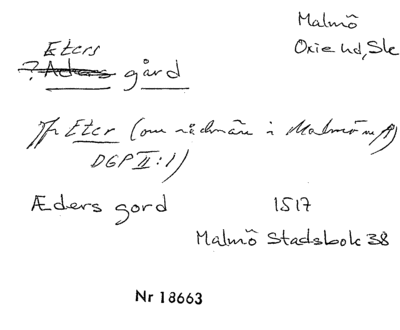 Malmö
Oxie hd, Sk
Eters
? Aders gård
Jfr Eter (om rådman i Malmö
DGP II:1)
Æders gord 1517
Malmö Stadsbok 38
Nr 18663